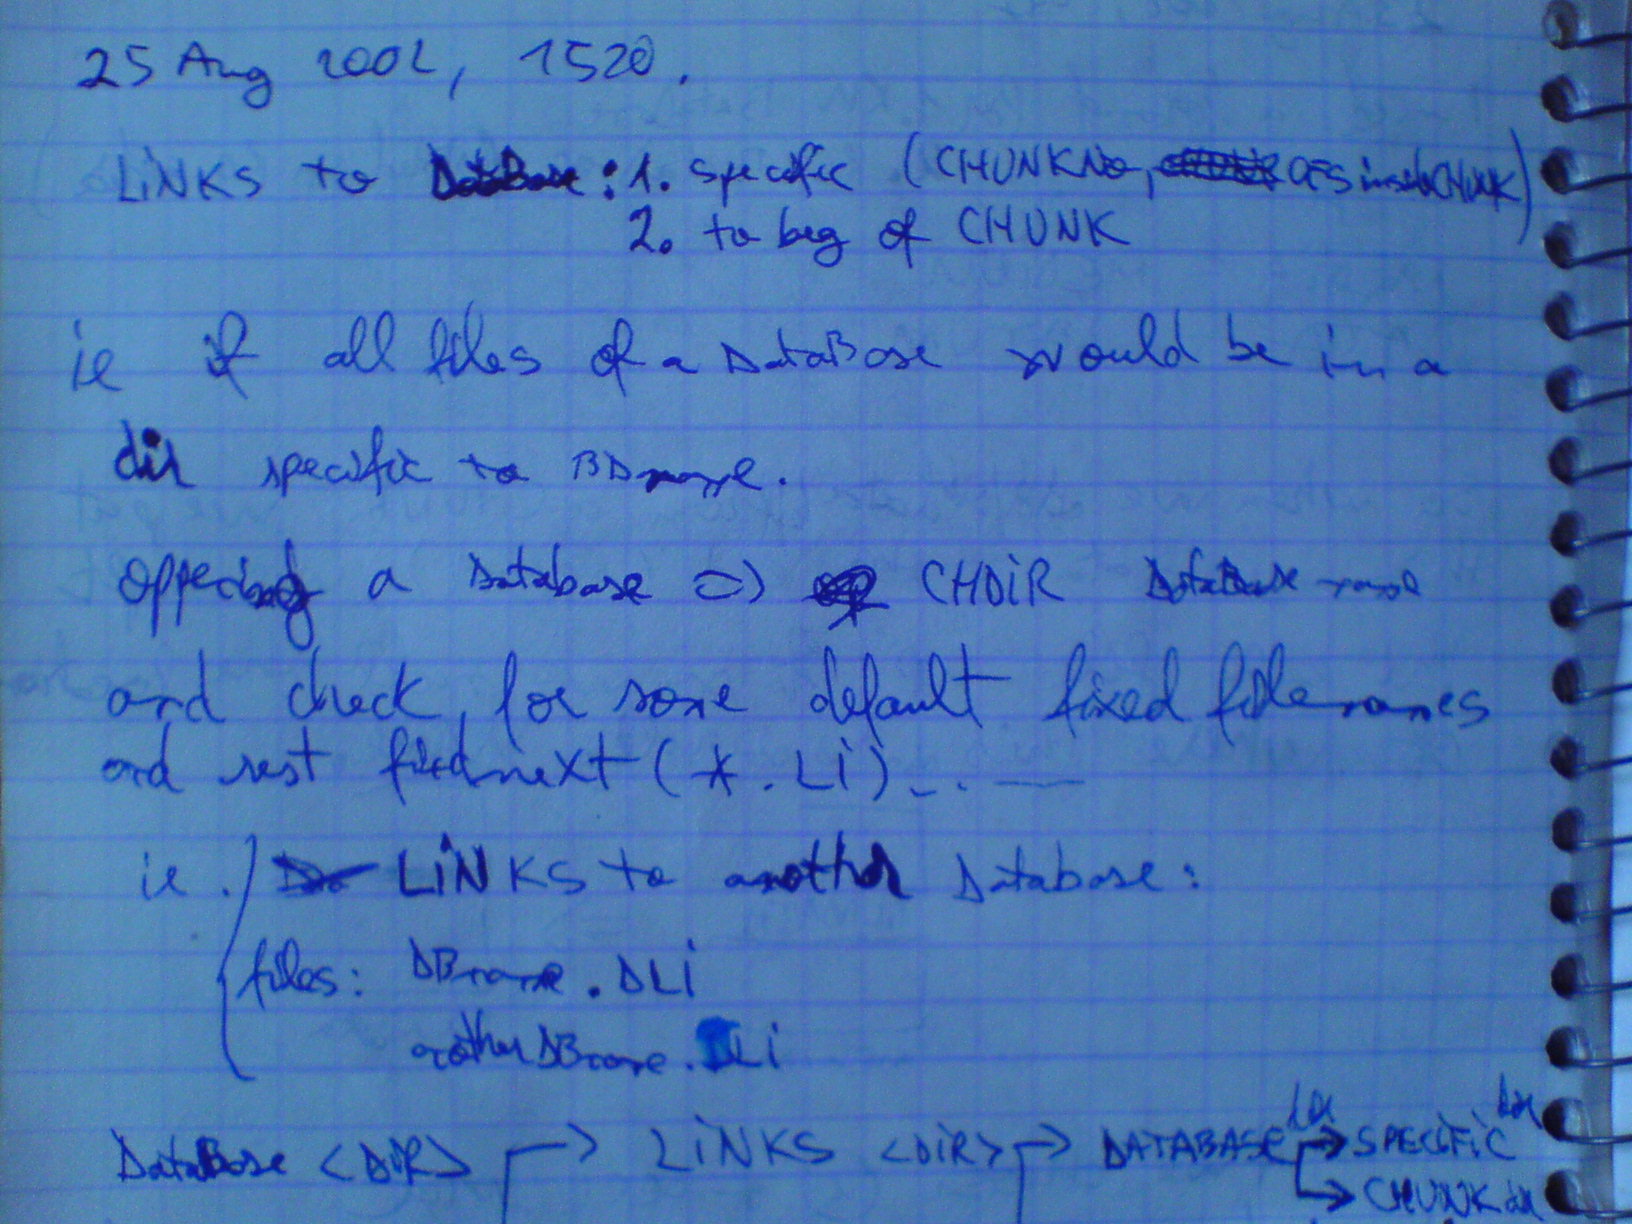 25 Aug 2002, 1520.
LiNKS to DataBase: 1. specific (CHUNKNo, OFS inside CHUNK)
2. to beg of CHUNK
ie if all files of a DataBase would be in a
dir specific to BDname.
a Database => CHDiR DataBase name
and check for some default fixed filenames
and rest findnext(*.Li)...
ie. LiNKS to another Database:
files: DBname.DLi
another DBname.DLi
DataBase <DiR> → LiNKS <DiR> → DATABASE → SPECiFiC
→ CHUNK